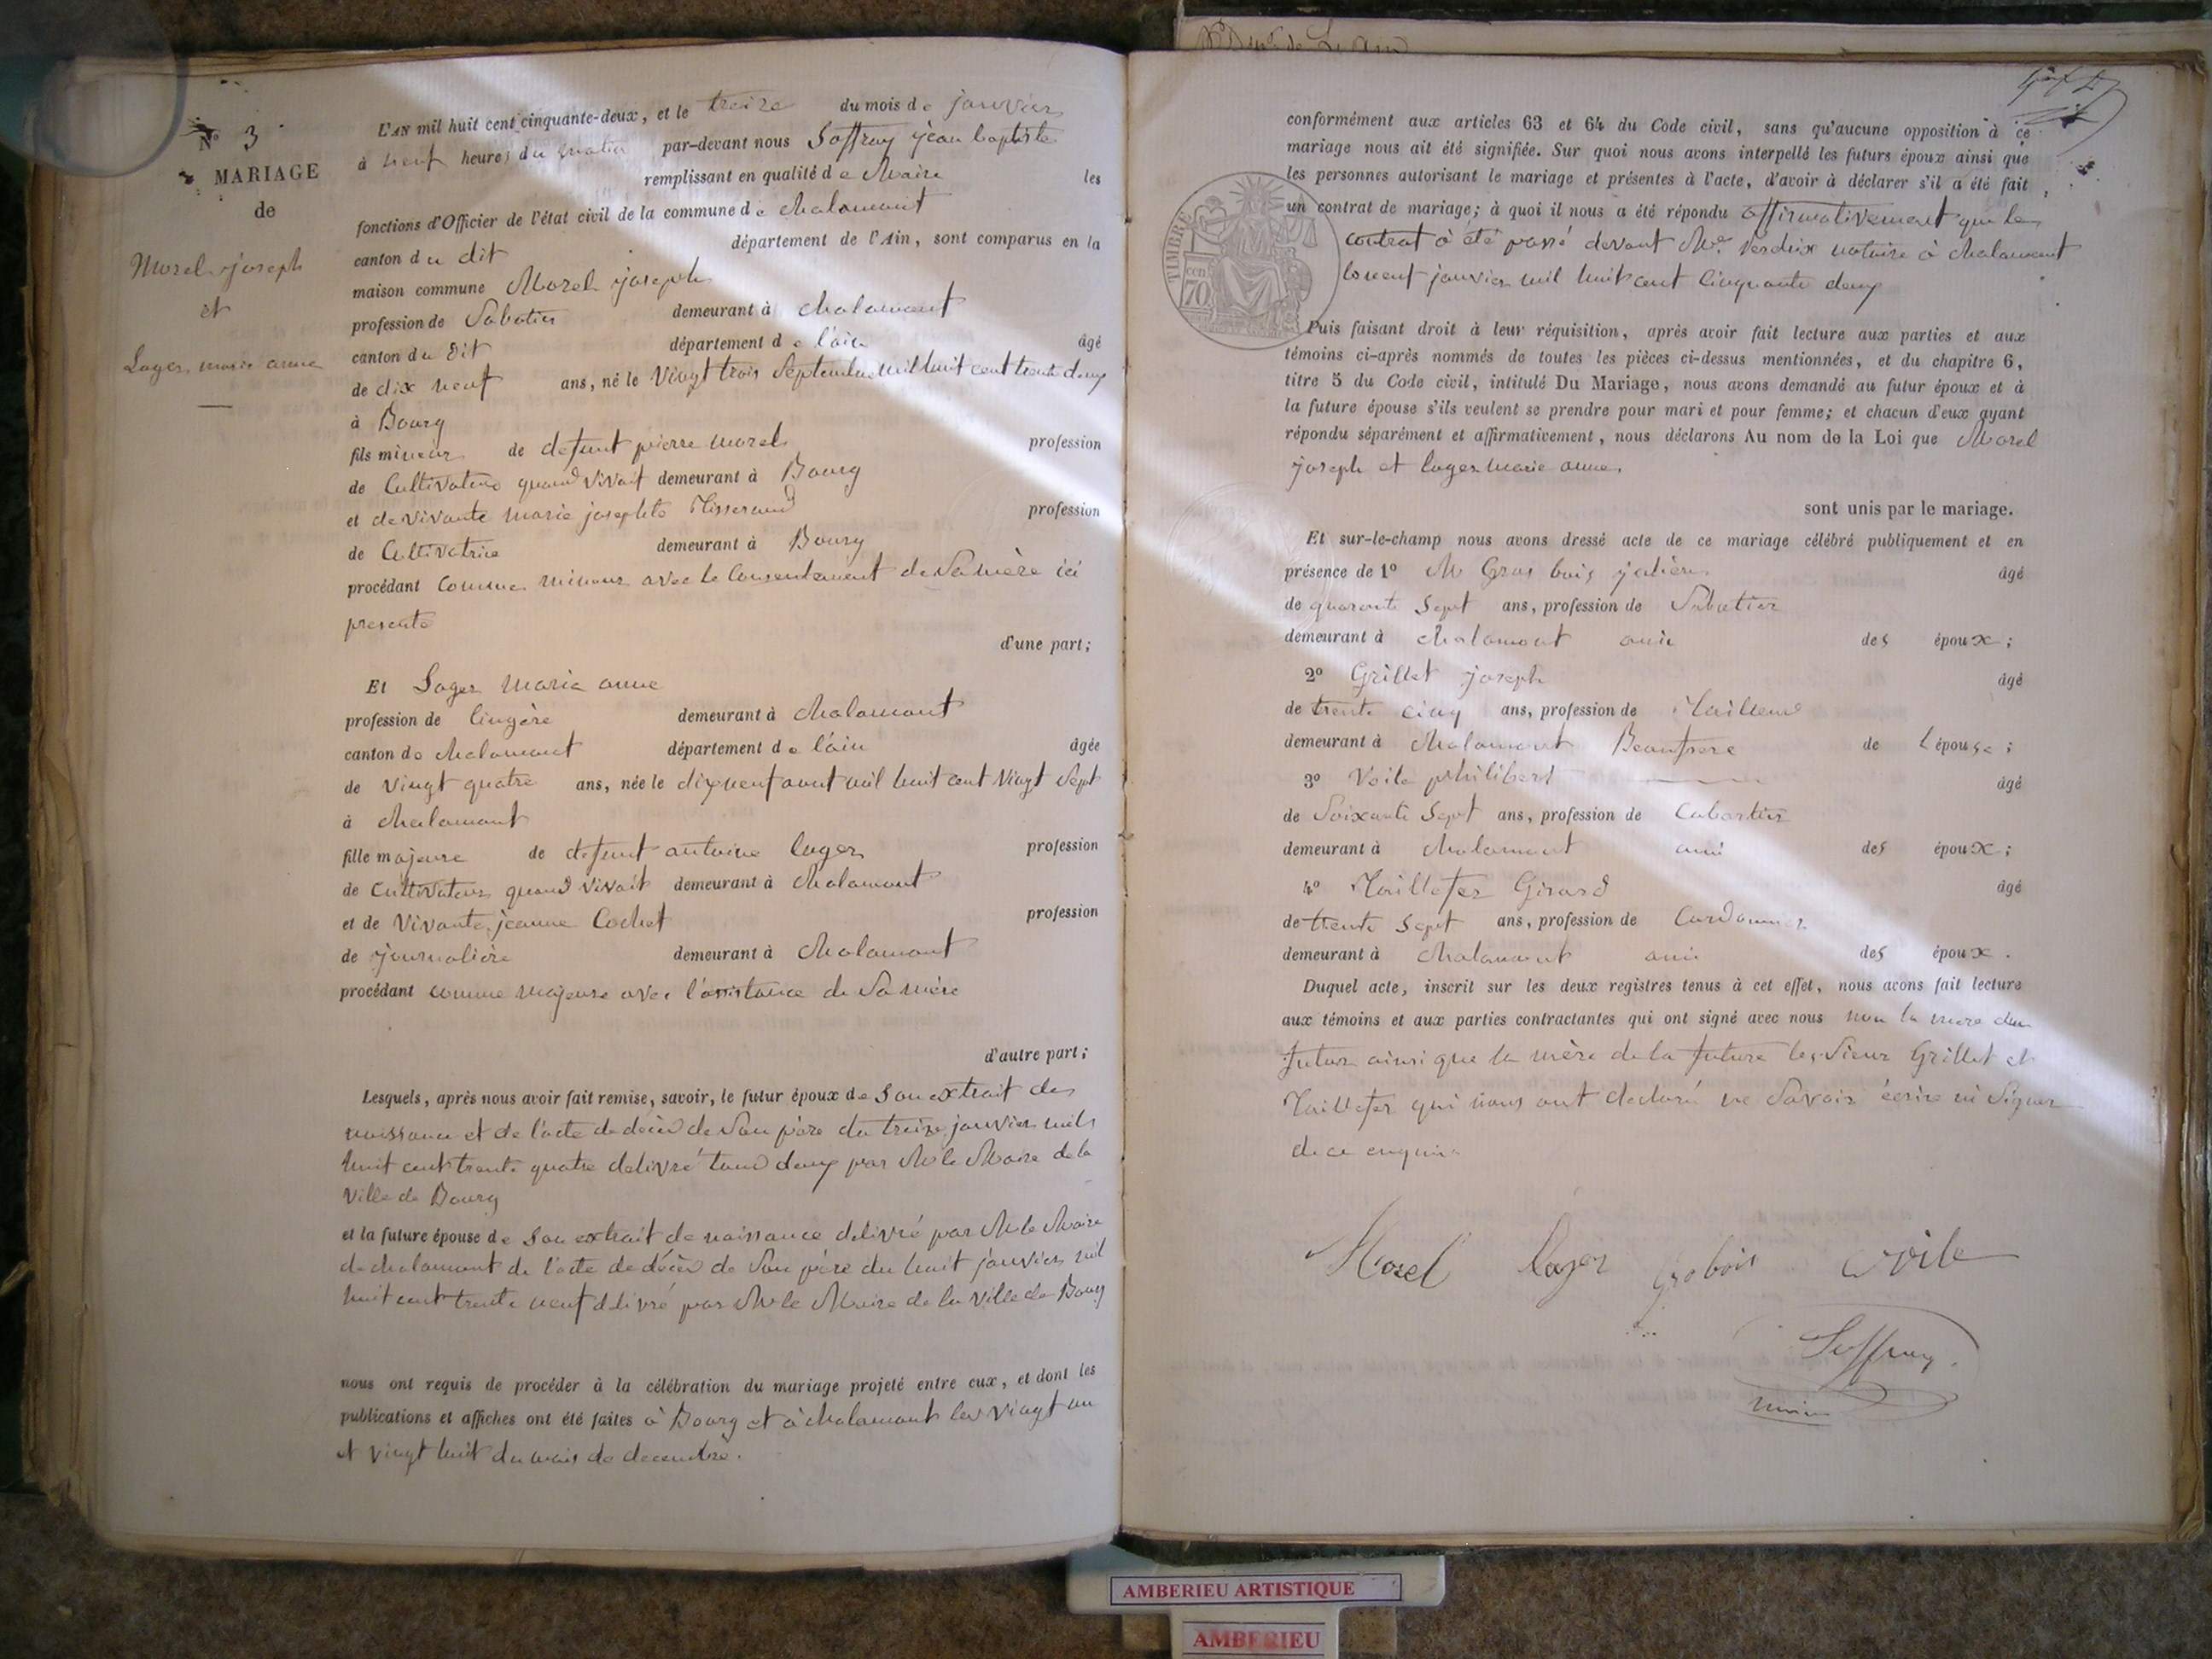 N° 3
MARIAGE
de
Morel joseph
et
Lager marie anne
L'AN mil huit cent cinquante-deux, et le treize du mois de janvier
à neuf heures du matin par-devant nous Soffray jean baptiste
remplissant en qualité de Maire les
fonctions d'Officier de l'état civil de la commune de chalamont
canton du dit département de l'Ain, sont comparus en la
maison commune Morel joseph
profession de Sabotier demeurant à chalamont
canton du dit département de l'ain âgé
de dix neuf ans, né le Vingt trois Septembre mil huit cent trente deux
à Bourg
fils mineur de defunt pierre morel profession
de Cultivateur quand vivait demeurant à Bourg
et de vivante marie josephte Tisserand profession
de Cultivatrice demeurant à Bourg
procédant comme mineur avec le consentement de Sa mère ici
presente
d'une part;
Et Lager marie anne
profession de lingère demeurant à chalamont
canton de chalamont département de l'ain âgée
de vingt quatre ans, née le dix neuf aout mil huit cent vingt Sept
à chalamont
fille majeure de defunt antoine lager profession
de cultivateur quand vivait demeurant à chalamont
et de Vivante jeanne Cochet profession
de journalière demeurant à chalamont
procédant comme majeure avec l'assistance de Sa mère
d'autre part;
Lesquels, après nous avoir fait remise, savoir, le futur époux de Son extrait de
naissance et de l'acte de décès de Son père du treize janvier mil
huit cent trente quatre delivré tous deux par Mr le Maire de la
Ville de Bourg
et la future épouse de Son extrait de naissance delivré par Mr le Maire
de chalamont de l'acte de décès de Son père du huit janvier mil
huit cent trente neuf delivré par Mr le Maire de la Ville de Bourg
nous ont requis de procéder à la célébration du mariage projeté entre eux, et dont les
publications et affiches ont été faites à Bourg et à chalamont les vingt un
et vingt huit du mois de decembre.
conformément aux articles 63 et 64 du Code civil, sans qu'aucune opposition à ce
mariage nous ait été signifiée. Sur quoi nous avons interpellé les futurs époux ainsi que
les personnes autorisant le mariage et présentes à l'acte, d'avoir à déclarer s'il a été fait
un contrat de mariage; à quoi il nous a été répondu affirmativement que le
contrat à été passé devant Me. Verdix notaire à chalamont
le neuf janvier mil huit cent cinquante deux
TIMBRE
cen
70
Puis faisant droit à leur réquisition, après avoir fait lecture aux parties et aux
témoins ci-après nommés de toutes les pièces ci-dessus mentionnées, et du chapitre 6,
titre 5 du Code civil, intitulé Du Mariage, nous avons demandé au futur époux et à
la future épouse s'ils veulent se prendre pour mari et pour femme; et chacun d'eux ayant
répondu séparément et affirmativement, nous déclarons Au nom de la Loi que Morel
joseph et lager marie anne.
sont unis par le mariage.
Et sur-le-champ nous avons dressé acte de ce mariage célébré publiquement et en
présence de 1° Mr Gros bois âgé
de quarante Sept ans, profession de Sabotier
demeurant à chalamont ami des époux;
2° Grillet joseph âgé
de trente cinq ans, profession de Tailleur
demeurant à chalamont Beaufrere de l'épouse;
3° Voile philibert âgé
de Soixante Sept ans, profession de Cabartier
demeurant à chalamont ami des époux;
4° Taillefer Girard âgé
de trente Sept ans, profession de Cordonnier
demeurant à chalamont ami des époux.
Duquel acte, inscrit sur les deux registres tenus à cet effet, nous avons fait lecture
aux témoins et aux parties contractantes qui ont signé avec nous non la mere du
futur ainsi que la mère de la future les Sieur Grillet et
Taillefer qui nous ont declaré ne Savoir écrire ni Signer
de ce enquis
Morel lager grobois voile
Soffray
maire
AMBERIEU ARTISTIQUE
AMBERIEU